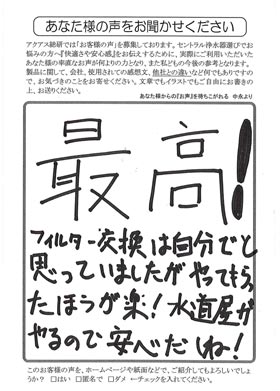 あなた様の声をお聞かせください
アクアス総研では「お客様の声」を募集しております。セントラル浄水器選びでお
悩みの方へ『快適さと安心感』をお伝えするために、実際にご利用いただいた
あなた様の率直なお声が何よりの力となり、また私どもの今後の参考となります。
製品に関して、会社、使用されての感想文、他社との違いなど何でもありですの
で、お気づきのことをお寄せください。文章でもイラストでもご自由にお書きの
上、お送りください。
あなた様からの『お声』を待ちこがれる 中永より
最高!
フィルター交換は自分でと
思っていましたがやってもらっ
たほうが楽!水道屋が
やるので安心だしね!
このお客様の声を、ホームページや紙面などで、ご紹介してもよろしいでしょ
うか? □はい □匿名で □ダメ ←チェックを入れてください。